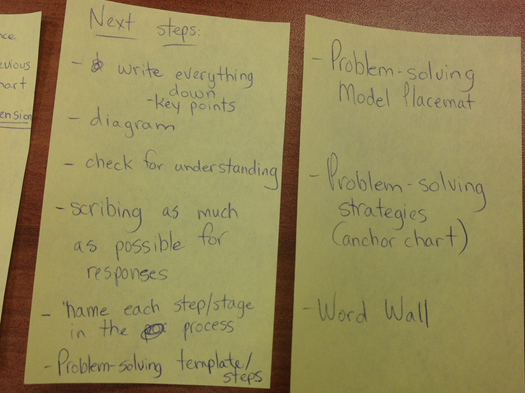 evious
hart
ension
Next steps:
- write everything
down
- key points
- diagram
- check for understanding
- scribing as much
as possible for
responses
- name each step/stage
in the process
- Problem-solving template/
steps
- Problem-solving
Model Placemat
- Problem-solving
strategies
(anchor chart)
- Word Wall